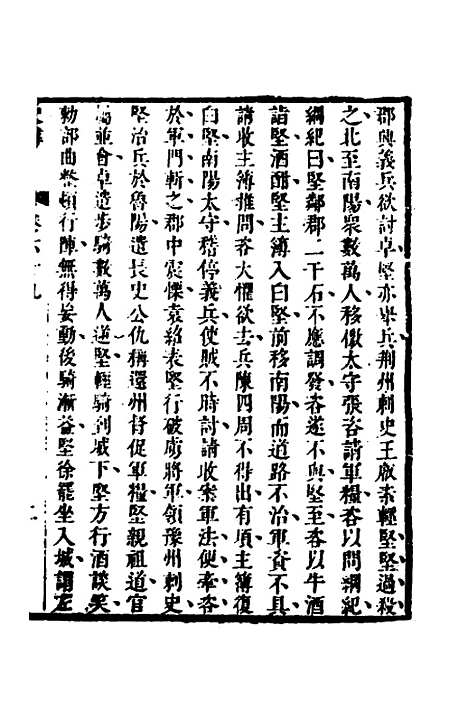 郡興義兵欲討卓堅亦舉兵荊州刺史王叡素輕堅堅過殺
之北至南陽衆數萬人移檄太守張咨請軍糧咨以問綱紀
綱紀曰堅鄰郡二千石不應調發咨遂不與堅至咨以牛酒
詣堅酒酣堅主簿入白堅前移南陽而道路不治軍資不具
請收主簿推問咨大懼欲去兵陳四周不得出有頃主簿復
白堅南陽太守稽停義兵使賊不時討請收案軍法便牽咨
於軍門斬之郡中震慄袁術表堅行破虜將軍領豫州刺史
堅治兵於魯陽遣長史公仇稱還州督促軍糧堅親祖道官
屬並會卓遣步騎數萬人逆堅輕騎到城下堅方行酒談笑
勑部曲整頓行陣無得妄動後騎漸益堅徐罷坐入城謂左
卷六十九